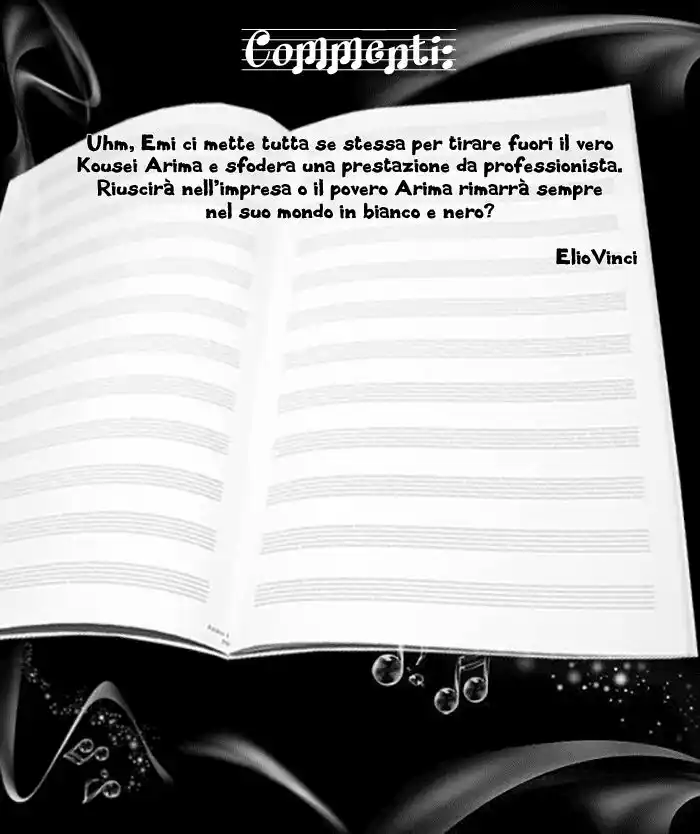 Commenti:
Uhm, Emi ci mette tutta se stessa per tirare fuori il vero
Kousei Arima e sfodera una prestazione da professionista.
Riuscirà nell'impresa o il povero Arima rimarrà sempre
nel suo mondo in bianco e nero?
ElioVinci